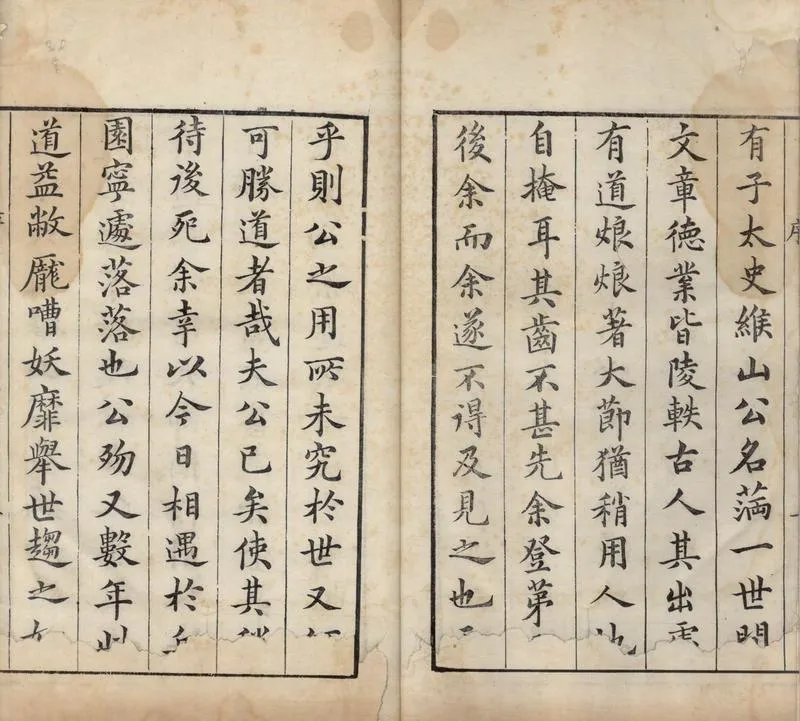 序
有子太史緱山公名滿一世
文章德業皆陵軼古人其出
有道烺烺著大莭猶稍用人
自掩耳其齒不甚先余登苐
後余而余遂不得及見之也
乎則公之用所未究於世又
可勝道者哉夫公已矣使其
待後死余幸以今日相遇於
園寧遽落落也公歾又數年
道益敝龎嘈妖靡舉世趨之